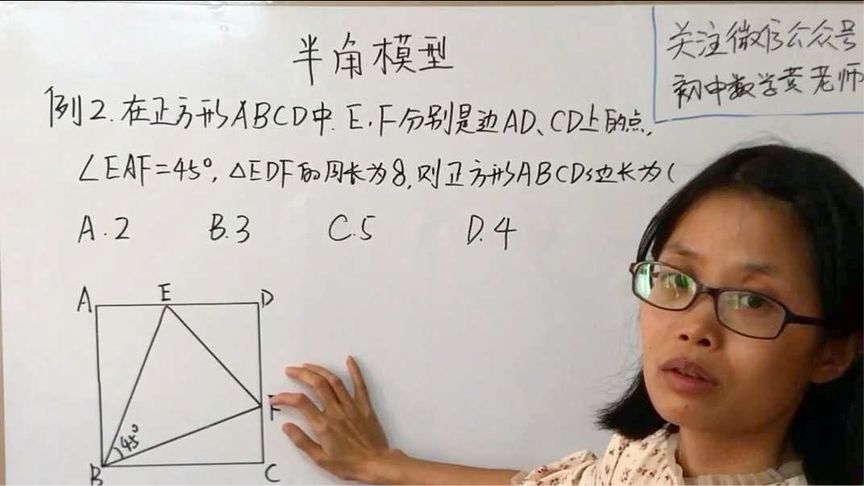 半角模型
关注微信公众号
初中数学黄老师
例2.在正方形ABCD中.E.F分别是边AD、CD上的点,
∠EAF=45°,△EDF的周长为8,则正方形ABCD边长为(
A.2 B.3 C.5 D.4
A E D
45°
F
B C